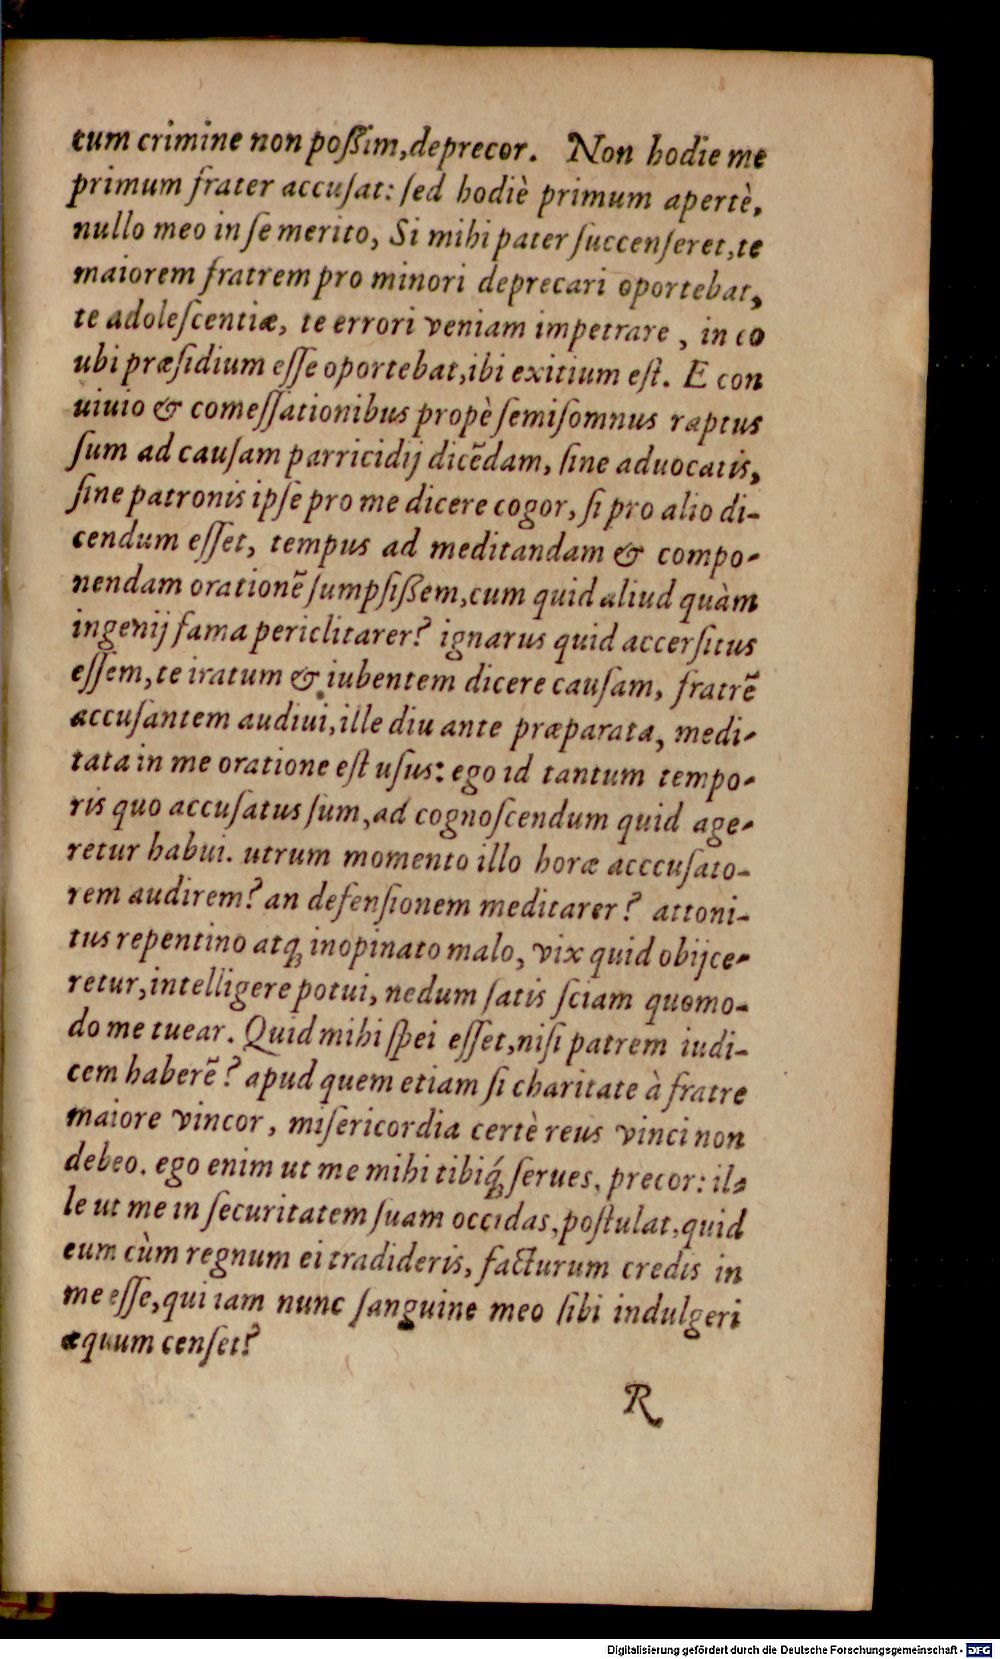 tum crimine non poſſim, deprecor. Non hodie me
primum frater accuſat: ſed hodiè primum apertè,
nullo meo in ſe merito, Si mihi pater ſuccenſeret, te
maiorem fratrem pro minori deprecari oportebat,
te adoleſcentiæ, te errori veniam impetrare, in eo
ubi præſidium eſſe oportebat, ibi exitium eſt. E con
uiuio & comeſſationibus propè ſemiſomnus raptus
ſum ad cauſam parricidij dicẽdam, ſine aduocatis,
ſine patronis ipſe pro me dicere cogor, ſi pro alio di-
cendum eſſet, tempus ad meditandam & compo-
nendam orationẽ ſumpſiſſem, cum quid aliud quàm
ingenij fama periclitarer? ignarus quid accerſitus
eſſem, te iratum & iubentem dicere cauſam, fratrẽ
accuſantem audiui, ille diu ante præparata, medi-
tata in me oratione eſt uſus: ego id tantum tempo-
ris quo accuſatus ſum, ad cognoſcendum quid age-
retur habui. utrum momento illo horæ acccuſato-
rem audirem? an defenſionem meditarer? attoni-
tus repentino atq; inopinato malo, vix quid obijce-
retur, intelligere potui, nedum ſatis ſciam quomo-
do me tuear. Quid mihi ſpei eſſet, niſi patrem iudi-
cem haberẽ? apud quem etiam ſi charitate à fratre
maiore vincor, miſericordia certè reus vinci non
debeo. ego enim ut me mihi tibiq́; ſerues, precor: il-
le ut me in ſecuritatem ſuam occidas, poſtulat, quid
eum cùm regnum ei tradideris, facturum credis in
me eſſe, qui iam nunc ſanguine meo ſibi indulgeri
æquum cenſet?
R
Digitalisierung gefördert durch die Deutsche Forschungsgemeinschaft - DFG